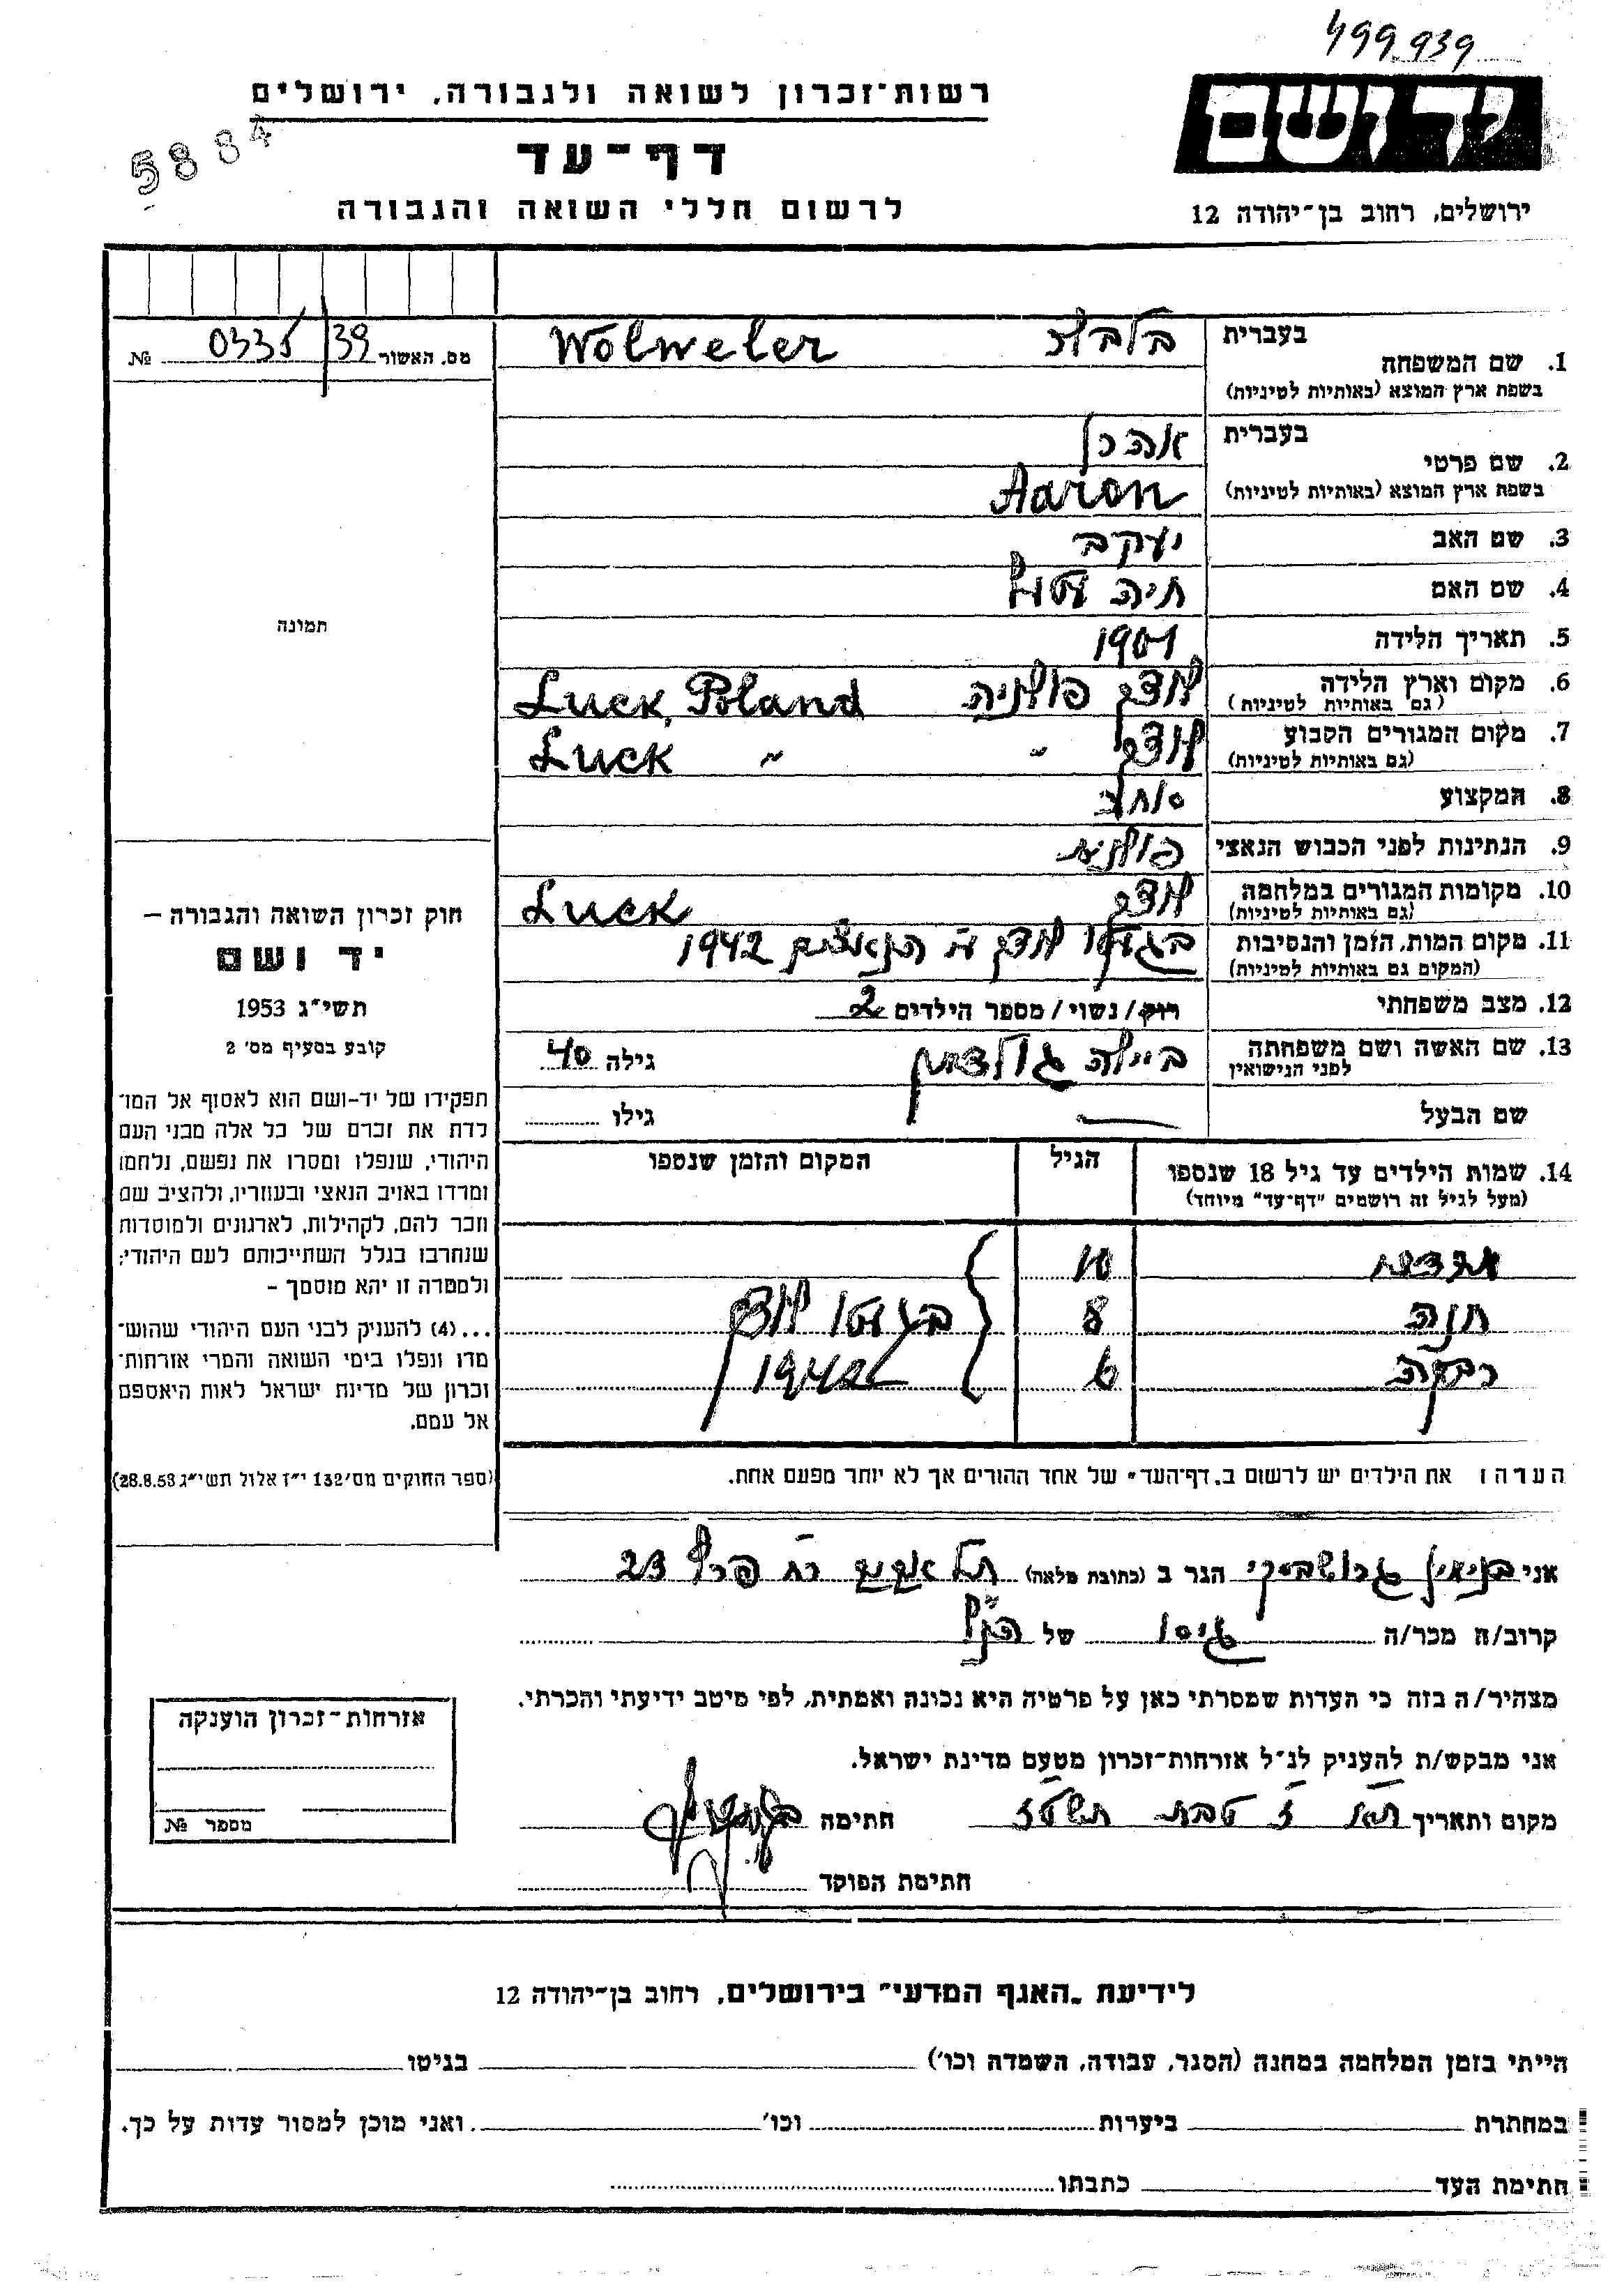 499939
יד ושם
רשות־זכרון לשואה ולגבורה, ירושלים
5884
דף־עד
לרשום חללי השואה והגבורה
ירושלים, רחוב בן־יהודה 12
1. שם המשפחה
בעברית
Wolweler
בשפת ארץ המוצא (באותיות לטיניות)
מס. האשור 39/0335 №
2. שם פרטי
בעברית אהרן
בשפת ארץ המוצא (באותיות לטיניות) Aaron
3. שם האב יעקב
4. שם האם חיה
5. תאריך הלידה 1901
6. מקום וארץ הלידה לוצק פולניה Luck, Poland
(גם באותיות לטיניות)
7. מקום המגורים הקבוע לוצק " Luck "
(גם באותיות לטיניות)
8. המקצוע סוחר
9. הנתינות לפני הכבוש הנאצי פולנית
10. מקומות המגורים במלחמה לוצק Luck
(גם באותיות לטיניות)
11. מקום המות, הזמן והנסיבות בגטו לוצק ע"י הנאצים 1942
(המקום גם באותיות לטיניות)
12. מצב משפחתי רווק/נשוי/מספר הילדים 2
13. שם האשה ושם משפחתה ביילה גילה 40
לפני הנישואין
שם הבעל — גילו
14. שמות הילדים עד גיל 18 שנספו הגיל המקום והזמן שנספו
(מעל לגיל זה רושמים "דף־עד" מיוחד)
10
חנה 8 בגטו לוצק
רבקה 6 1942
הערה: את הילדים יש לרשום ב"דף־העד" של אחד ההורים אך לא יותר מפעם אחת.
תמונה
חוק זכרון השואה והגבורה –
יד ושם
תשי"ג 1953
קובע בסעיף מס' 2
תפקידו של יד-ושם הוא לאסוף אל המו־
לדת את זכרם של כל אלה מבני העם
היהודי, שנפלו ומסרו את נפשם, נלחמו
ומרדו באויב הנאצי ובעוזריו, ולהציב שם
וזכר להם, לקהילות, לארגונים ולמוסדות
שנחרבו בגלל השתייכותם לעם היהודי;
ולמטרה זו יהא מוסמך –
...(4) להעניק לבני העם היהודי שהוש־
מדו ונפלו בימי השואה והמרי אזרחות־
זכרון של מדינת ישראל לאות היאספם
אל עמם.
(ספר החוקים מס' 132 י"ז אלול תשי"ג 28.8.53)
אני בנימין הגר ב (כתובת מלאה) תל אביב רח' 23
קרוב/ה מכר/ה גיסו של הנ"ל
מצהיר/ה בזה כי העדות שמסרתי כאן על פרטיה היא נכונה ואמתית, לפי מיטב ידיעתי והכרתי.
אני מבקש/ת להעניק לנ"ל אזרחות־זכרון מטעם מדינת ישראל.
מקום ותאריך ת"א ז' טבת תשט"ז חתימה
חתימת הפוקד
אזרחות־זכרון הוענקה
מספר №
לידיעת "האגף המדעי" בירושלים, רחוב בן־יהודה 12
הייתי בזמן המלחמה במחנה (הסגר, עבודה, השמדה וכו') בגיטו
במחתרת ביערות וכו' ואני מוכן למסור עדות על כך.
חתימת העד כתבתו